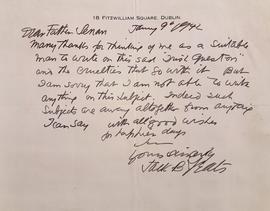 18 FITZWILLIAM SQUARE, DUBLIN.
9th 1942
Dear Father Senan
Many thanks for thinking of me as a suitable
man to write on this sad "Irish Question"
and the cruelties that go with it But
I am sorry that I am not able to write
anything on this subject. Indeed such
subjects are away altogether from anything
I can say with all good wishes
for happier days
Yours sincerely
Jack B Yeats